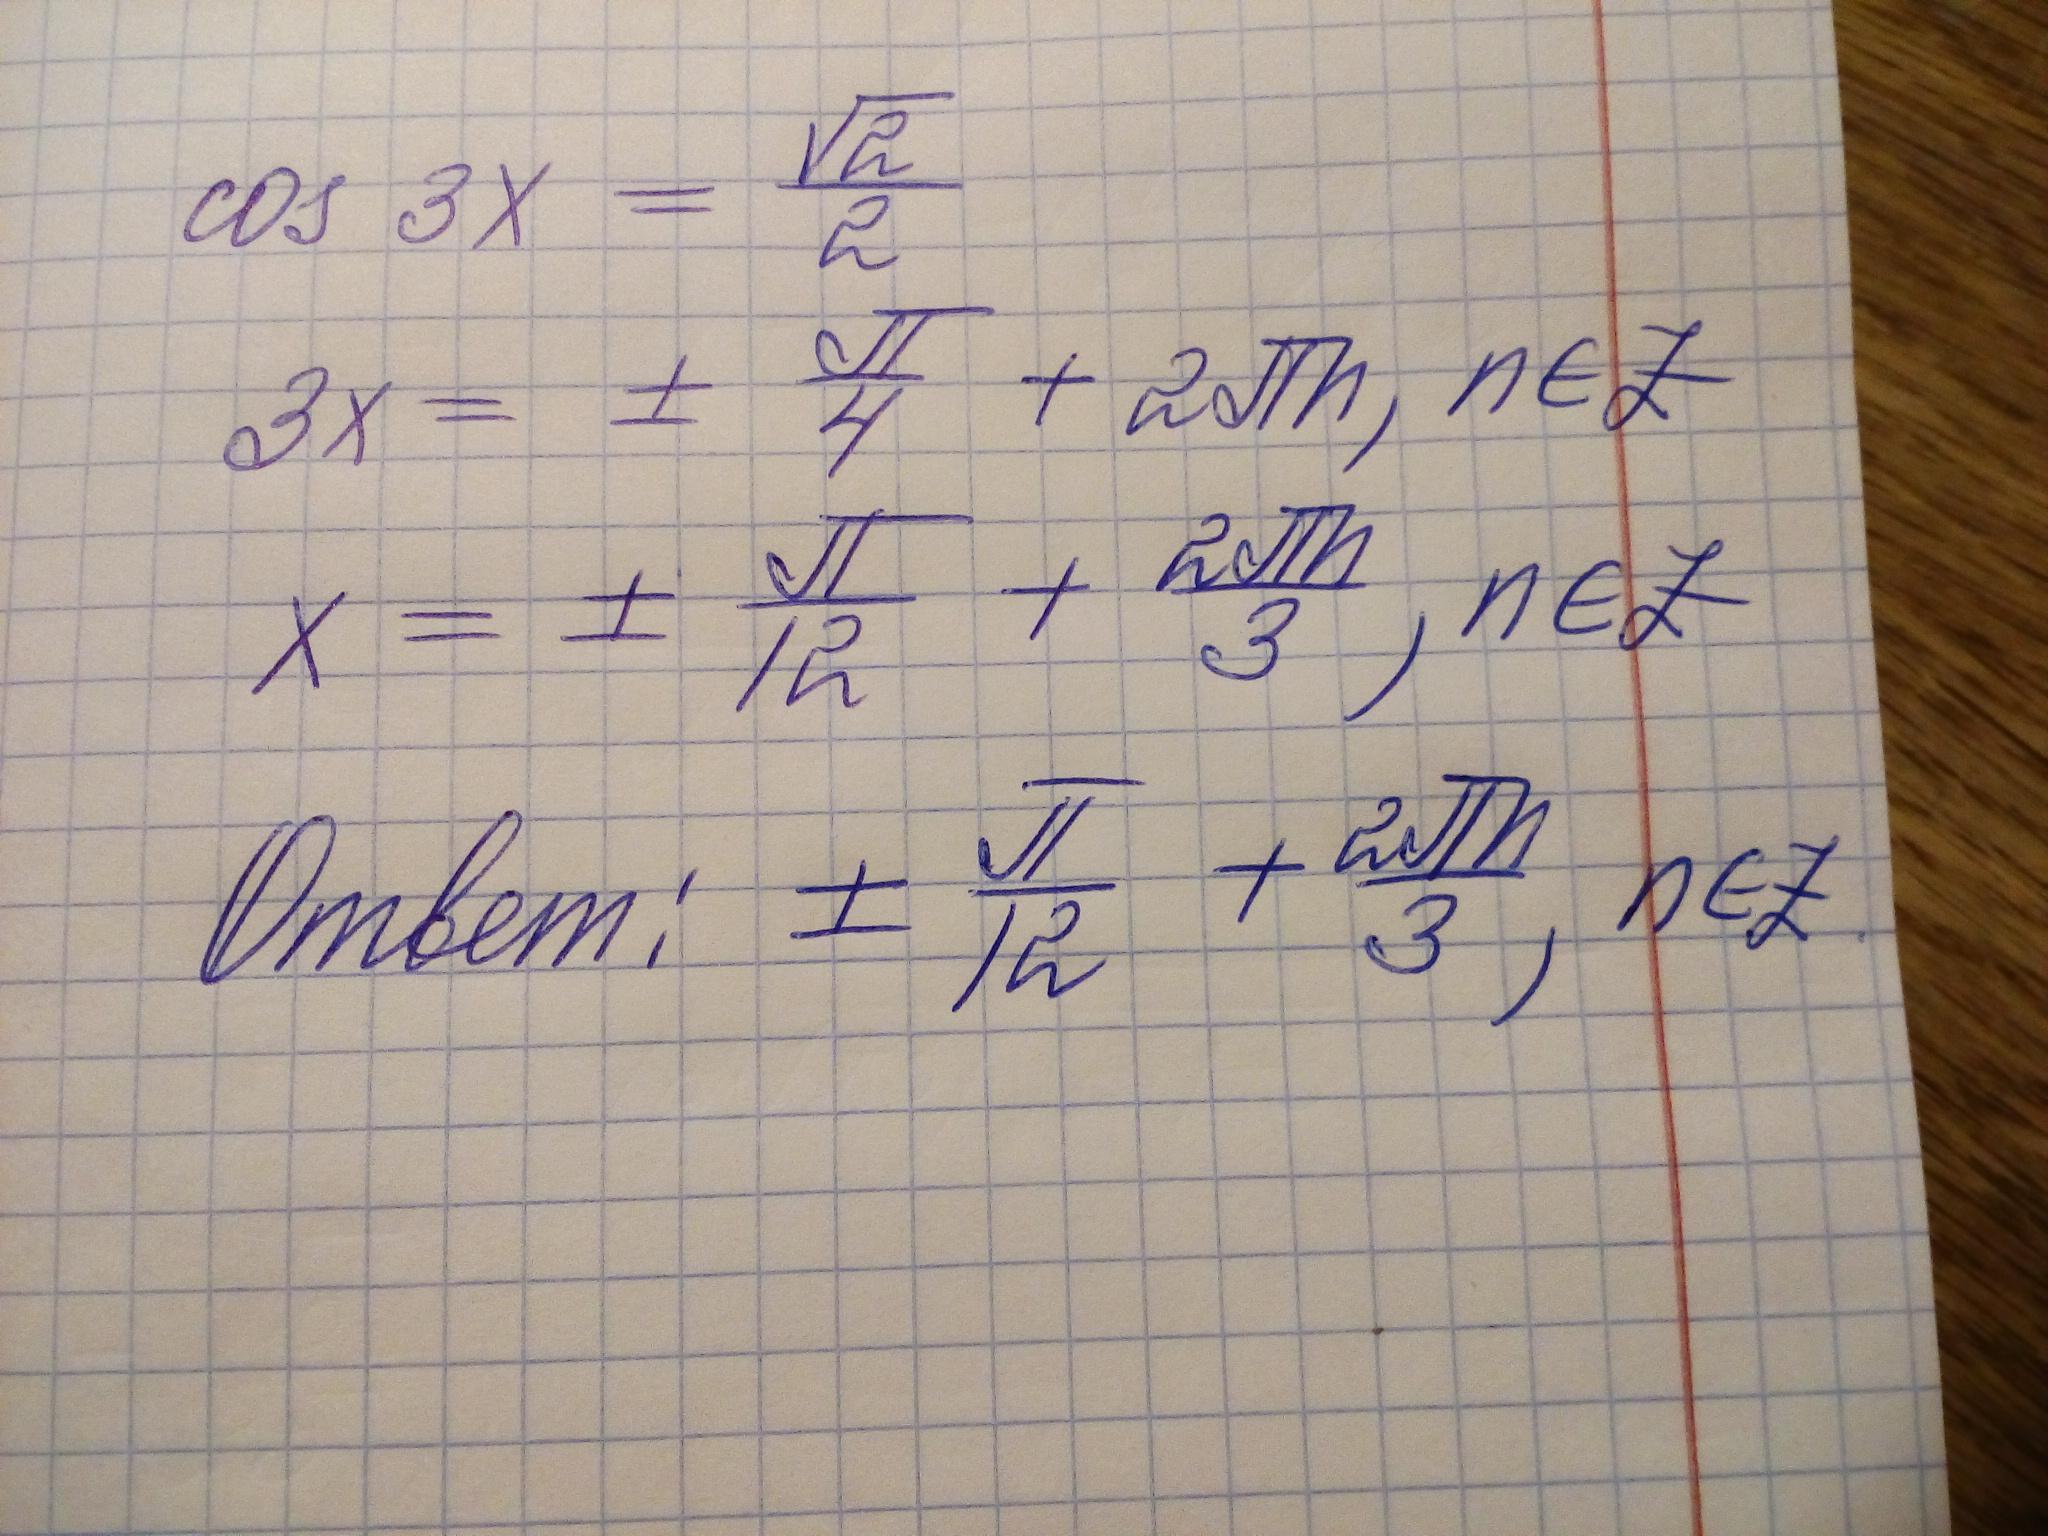 cos 3x = √2/2
3x = ± π/4 + 2πn, n∈Z
x = ± π/12 + 2πn/3, n∈Z
Ответ: ± π/12 + 2πn/3, n∈Z.